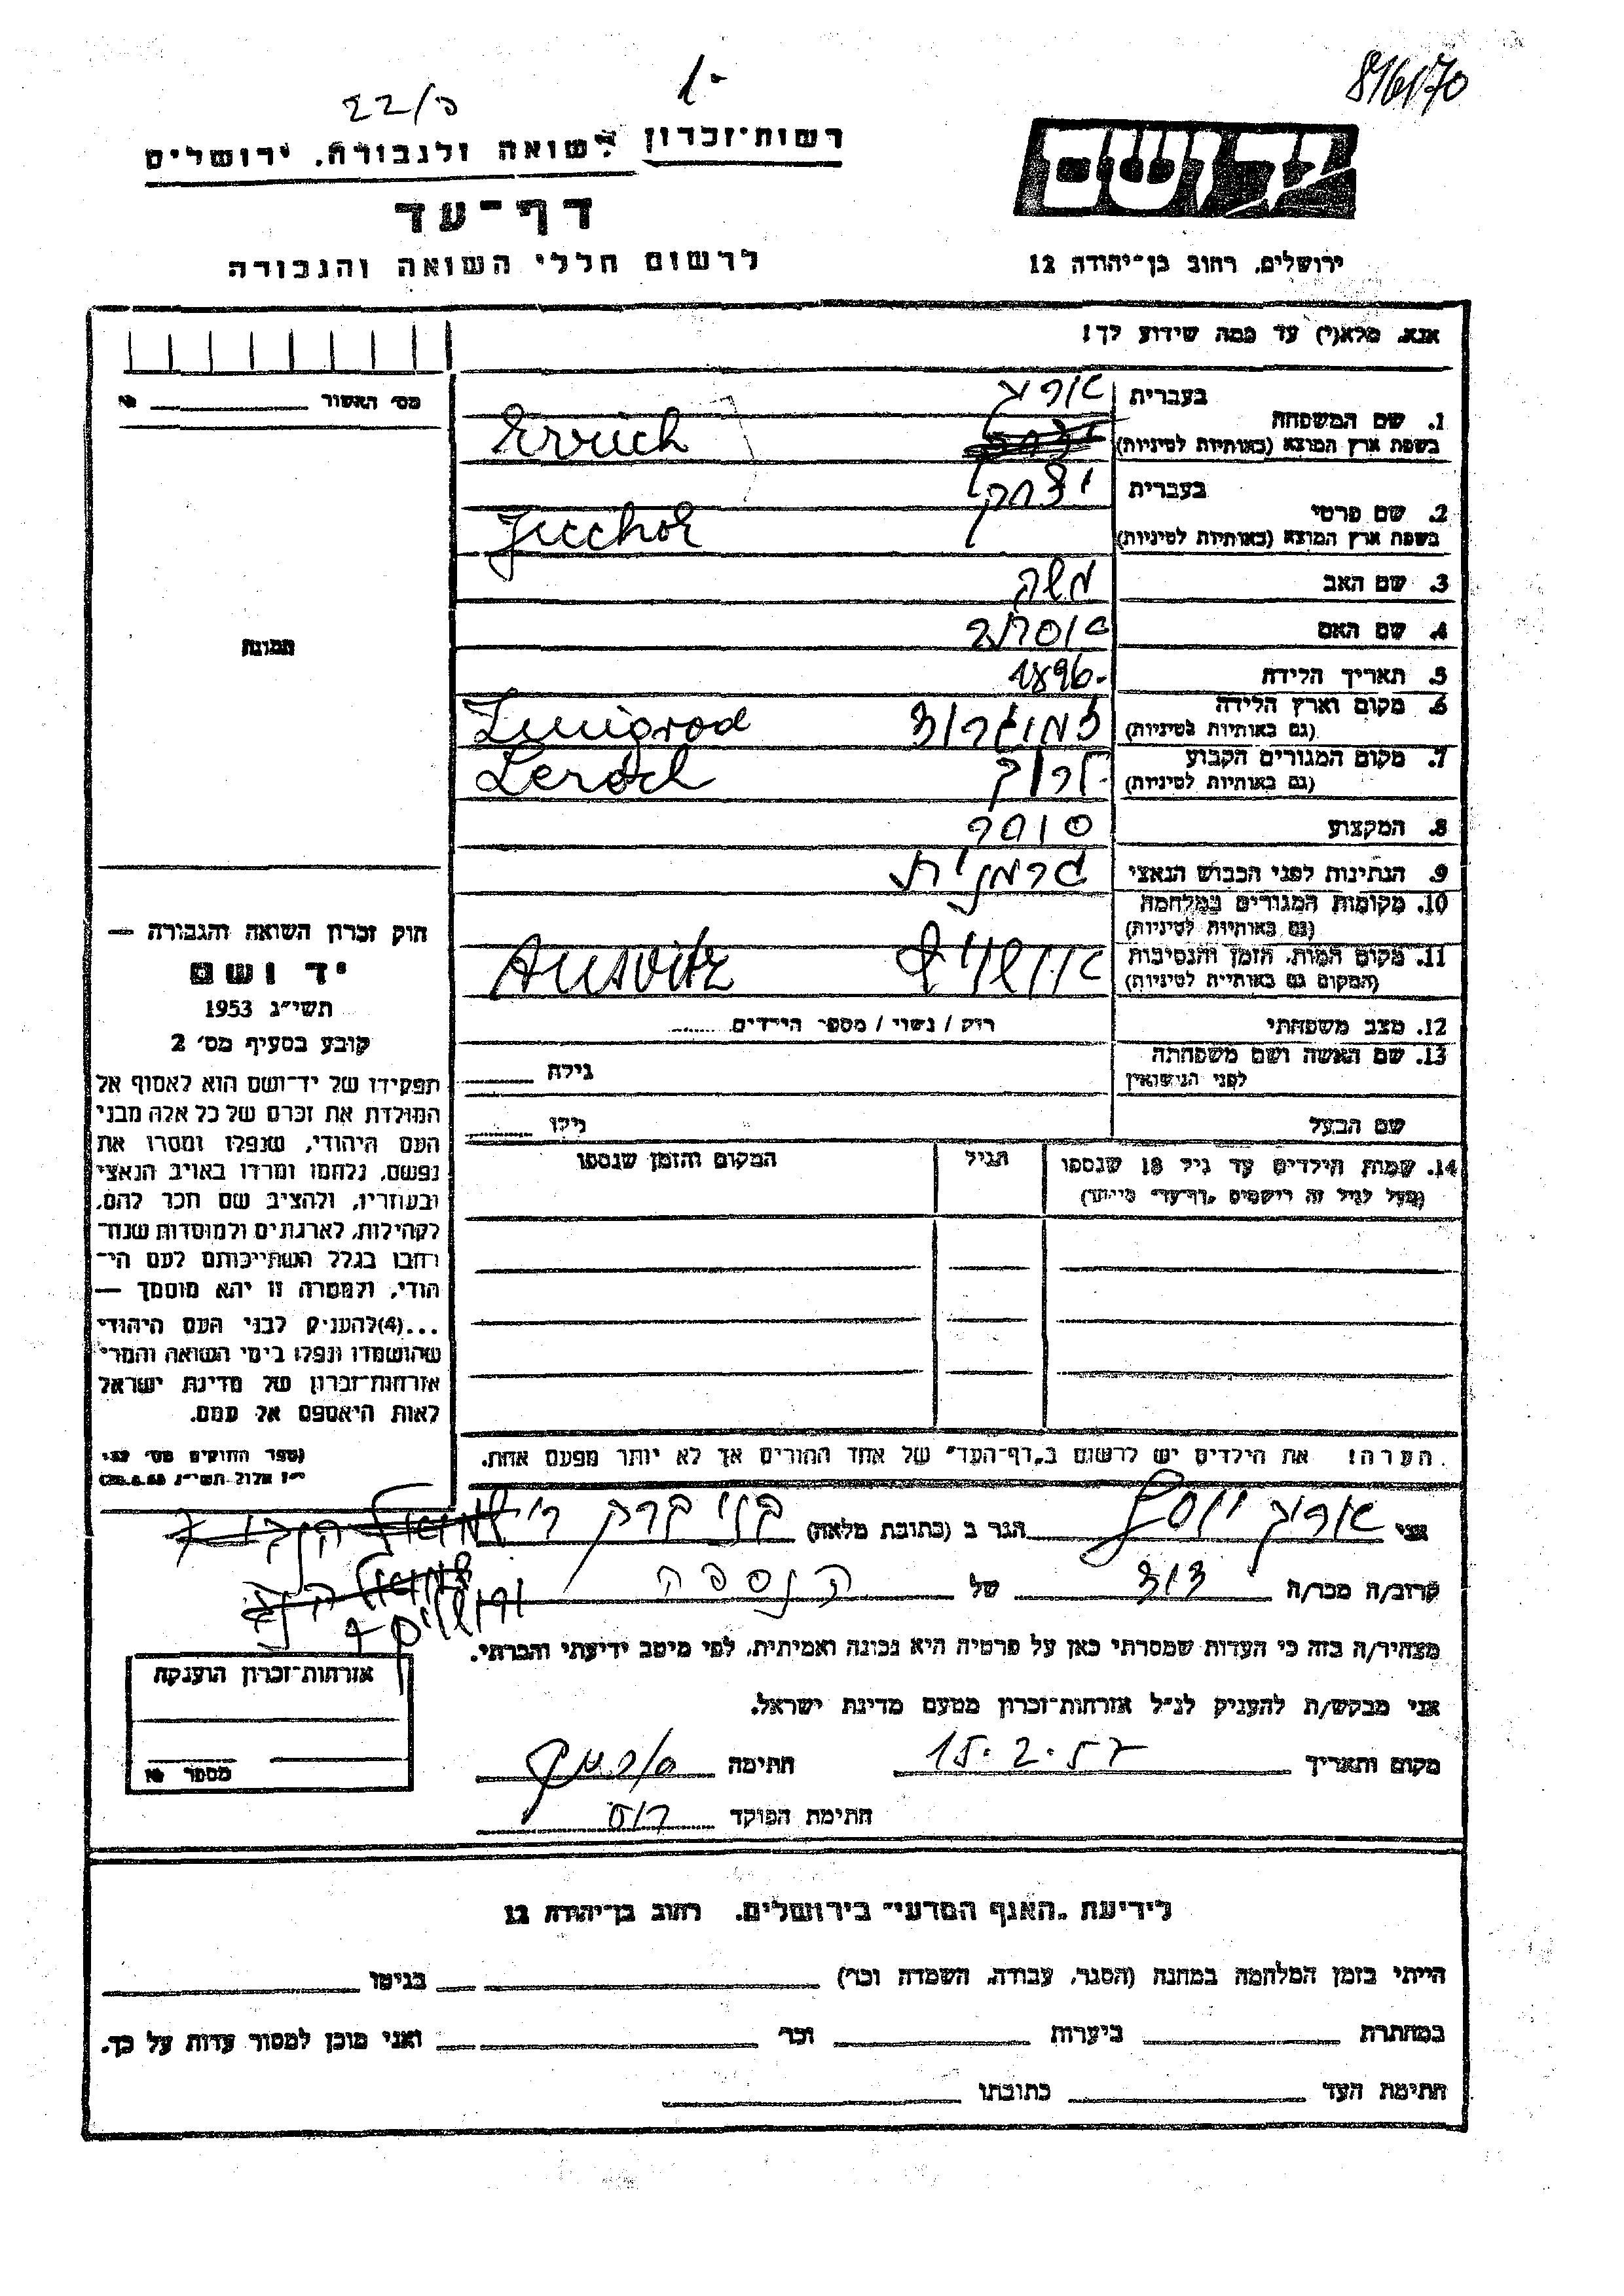 816170
22/ס
רשות־זכרון לשואה ולגבורה. ירושלים
יד ושם
דף־עד
לרשום חללי השואה והגבורה
ירושלים, רחוב בן־יהודה 12
אנא, מלא(י) עד כמה שידוע לך!
מס׳ האשור
1. שם המשפחה
בעברית
בשפת ארץ המוצא (באותיות לטיניות) Errich
2. שם פרטי
בעברית יצחק
בשפת ארץ המוצא (באותיות לטיניות)
3. שם האב משה
4. שם האם
5. תאריך הלידה 1896-
6. מקום וארץ הלידה
(גם באותיות לטיניות) זמיגרוד Zmigrod
7. מקום המגורים הקבוע
(גם באותיות לטיניות)
8. המקצוע סוחר
9. הנתינות לפני הכבוש הנאצי גרמנית
10. מקומות המגורים במלחמה
(גם באותיות לטיניות)
11. מקום המות, הזמן והנסיבות
(המקום גם באותיות לטיניות) אושויץ Ausvitz
12. מצב משפחתי רוק / נשוי / מספר הילדים
13. שם האשה ושם משפחתה
לפני הנישואין גילה
שם הבעל גילו
14. שמות הילדים עד גיל 18 שנספו
(מעל לגיל זה רושמים „דף־עד״ מיוחד)
הגיל
המקום והזמן שנספו
הערה! את הילדים יש לרשום ב„דף־העד״ של אחד ההורים אך לא יותר מפעם אחת.
תמונה
חוק זכרון השואה והגבורה —
יד ושם
תשי״ג 1953
קובע בסעיף מס׳ 2
תפקידו של יד־ושם הוא לאסוף אל
המולדת את זכרם של כל אלה מבני
העם היהודי, שנפלו ומסרו את
נפשם, נלחמו ומרדו באויב הנאצי
ובעוזריו, ולהציב שם וזכר להם,
לקהילות, לארגונים ולמוסדות שנח־
רבו בגלל השתייכותם לעם הי־
הודי, ולמטרה זו יהא מוסמך —
...(4)להעניק לבני העם היהודי
שהושמדו ונפלו בימי השואה והמרי
אזרחות־זכרון של מדינת ישראל
לאות היאספם אל עמם.
(ספר החוקים מס׳ 132
י״ז אלול תשי״ג 28.8.53)
אני אריך יוסף הגר ב (כתובת מלאה) בני ברק
קרוב/ה מכר/ה דוד של הנספה
מצהיר/ה בזה כי העדות שמסרתי כאן על פרטיה היא נכונה ואמיתית, לפי מיטב ידיעתי והכרתי.
אני מבקש/ת להעניק לנ״ל אזרחות־זכרון מטעם מדינת ישראל.
מקום ותאריך 15.2.57 חתימה
חתימת הפוקד
אזרחות־זכרון הוענקה
מספר
לידיעת „האגף המדעי״ בירושלים, רחוב בן־יהודה 12
הייתי בזמן המלחמה במחנה (הסגר, עבודה, השמדה וכו׳) בגיטו
במחתרת ביערות וכו׳ ואני מוכן למסור עדות על כך.
חתימת העד כתובתו